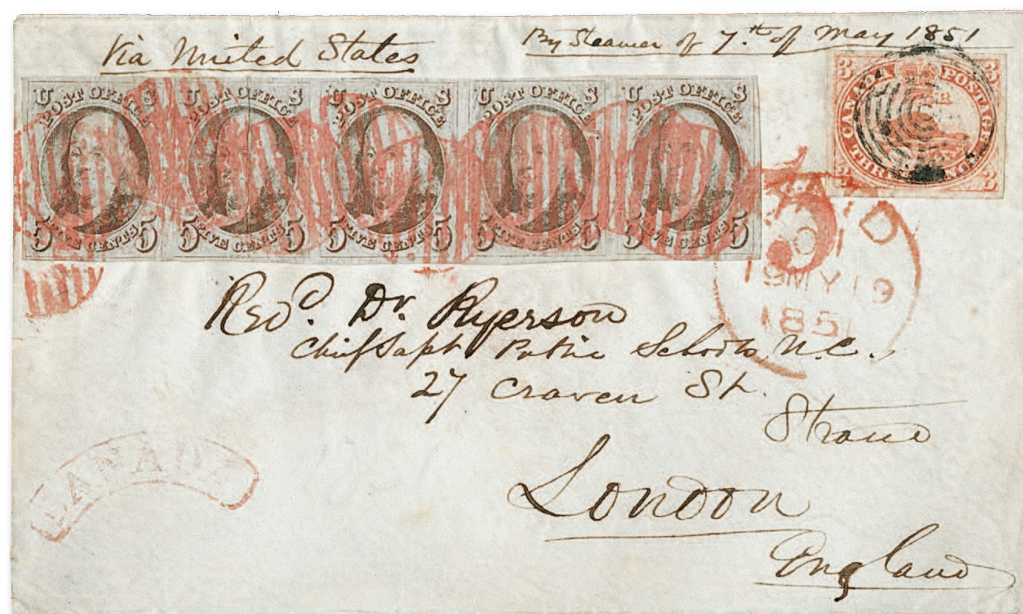 Via United States
By Steamer of 7th of May 1851
U POST OFFICE S
5 FIVE CENTS 5
U POST OFFICE S
5 FIVE CENTS 5
U POST OFFICE S
5 FIVE CENTS 5
U POST OFFICE S
5 FIVE CENTS 5
U POST OFFICE S
5 FIVE CENTS 5
3 CANADA POSTAGE 3
3 THREE 3
PAID
19MY19
1851
Revd. Dr. Ryerson
Chief Supt Public Schools U.C.
27 Craven St.
Strand
London
England
CANADA